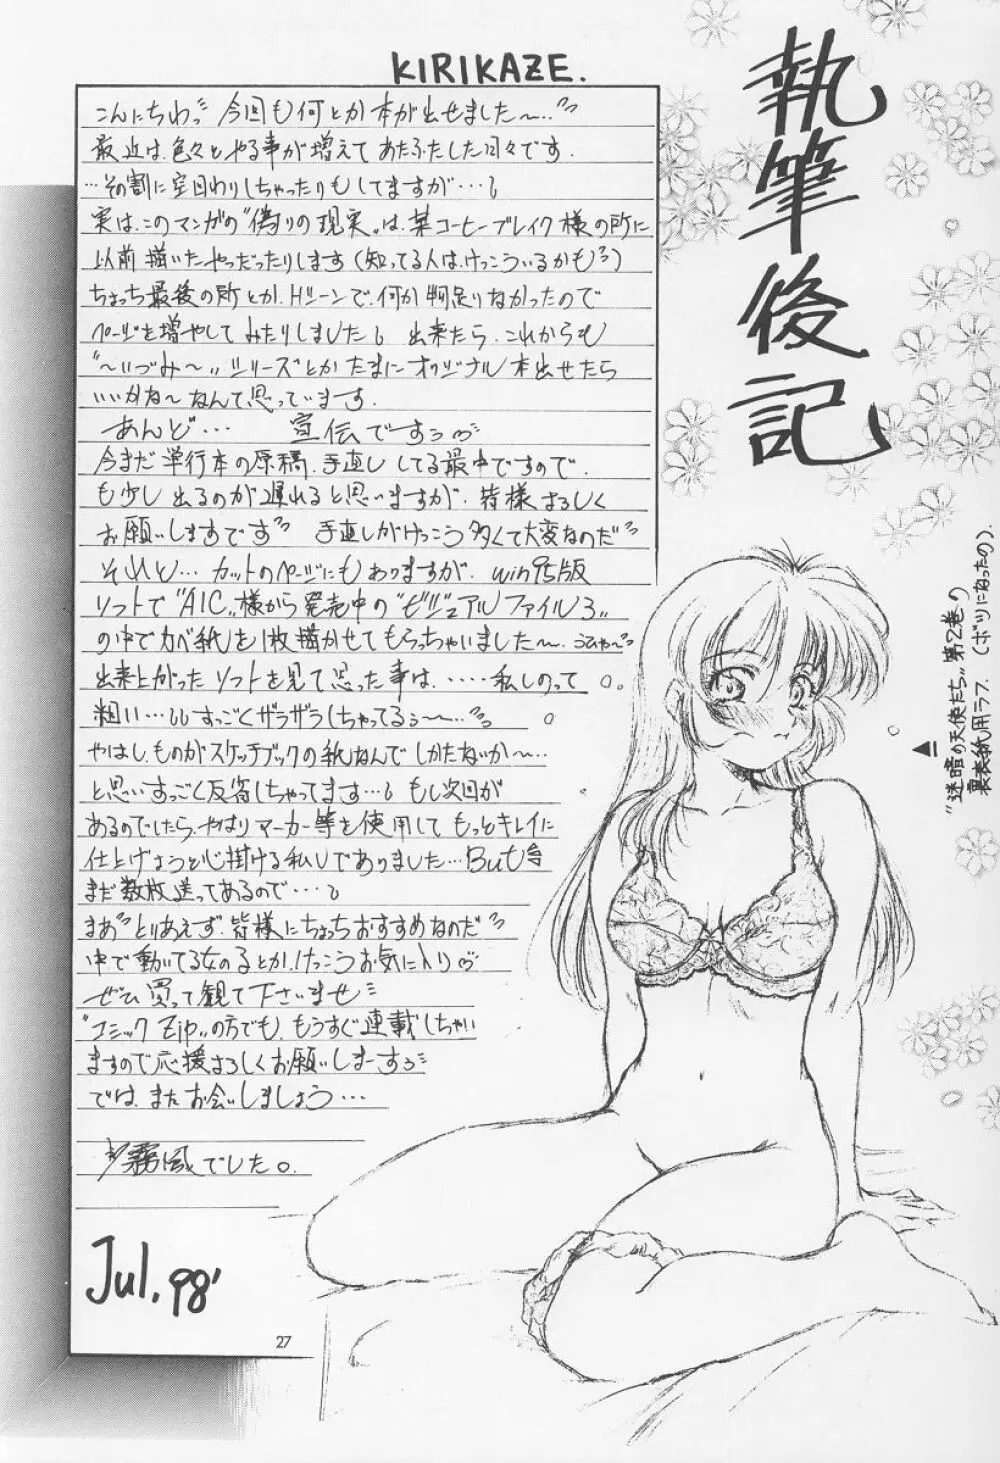 執筆後記
KIRIKAZE.
こんにちわっ 今回も何とか本が出せました〜…
最近は、色々とやる事が増えてあたふたした日々です.
…その割に空回わりしちゃったりもしてますが…。
実は、このマンガの"偽りの現実"は、某コーヒーブレイク様の所に
以前描いたやつだったりします(知ってる人は、けっこういるかも)
ちょっち最後の所とか、Hシーンで、何か物足りなかったので
ページを増やしてみたりしました。出来たら、これからも
"〜いづみ〜"シリーズとかたまにオリジナル本出せたら
いいかね〜なんて思っています.
あんど… 宣伝ですぅ
今まだ単行本の原稿、手直ししてる最中ですので、
も少し出るのが遅れると思いますが、皆様よろしく
お願いしますです 手直しがけっこう多くて大変なのだ
それと… カットのページにもありますが、win95版
ソフトで"AIC"様から発売中の"ビジュアルファイル3"
の中でカベ紙を1枚描かせてもらっちゃいました〜. うひゃ〜
出来上がったソフトを見て思った事は、……私しのって
粗い… すっごくザラザラしちゃってるぅ〜…
やはし、ものがスケッチブックの紙なんでしかたないか〜…
と思いすっごく反省しちゃってます…。もし次回が
あるのでしたら、やはりマーカー等を使用してもっとキレイに
仕上げようと心掛ける私しでありました…But
まだ数枚送ってあるので…。
まあ とりあえず、皆様にちょっちおすすめなのだ
中で動いてる女のコとか、けっこうお気に入り
ぜひ買って観て下さいませ
"コミックZip"の方でも、もうすぐ連載しちゃい
ますので応援よろしくお願いしまーすぅ
では、またお会いしましょう…
霧風でした。
Jul. 98'
27
"迷暗の天使たち"第2巻の
裏表紙用ラフ.(ボツになったの).